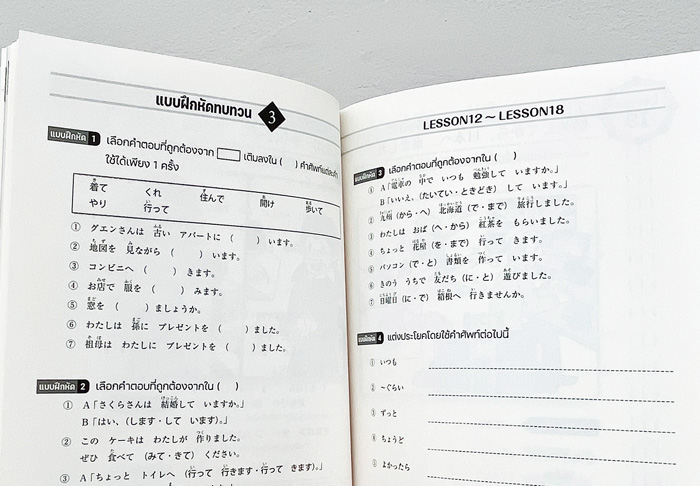 แบบฝึกหัดทบทวน 3
แบบฝึกหัด 1 เลือกคำตอบที่ถูกต้องจาก เติมลงใน ( ) คำศัพท์แต่ละคำ
ใช้ได้เพียง 1 ครั้ง
着て くれ 住んで 開け 歩いて
やり 行って
① グエンさんは 古い アパートに ( ) います。
② 地図を 見ながら ( ) います。
③ コンビニへ ( ) きます。
④ お店で 服を ( ) みます。
⑤ 窓を ( ) ましょうか。
⑥ わたしは 孫に プレゼントを ( ) ました。
⑦ 祖母は わたしに プレゼントを ( ) ました。
แบบฝึกหัด 2 เลือกคำตอบที่ถูกต้องจากใน ( )
① A「さくらさんは 結婚して いますか。」
B「はい、(します・して います)。」
② この ケーキは わたしが 作りました。
ぜひ 食べて (みて・きて) ください。
③ A「ちょっと トイレへ (行って 行きます・行って きます)。」
LESSON12 ～ LESSON18
แบบฝึกหัด 3 เลือกคำตอบที่ถูกต้องจากใน ( )
① A「電車の 中で いつも 勉強して いますか。」
B「いいえ、(たいてい・ときどき) して います。」
② 九州 (から・へ) 北海道 (で・まで) 旅行しました。
③ わたしは おば (へ・から) 紅茶を もらいました。
④ ちょっと 花屋 (を・まで) 行って きます。
⑤ パソコン (で・と) 書類を 作って います。
⑥ きのう うちで 友だち (に・と) 遊びました。
⑦ 日曜日 (に・で) 箱根へ 行きませんか。
แบบฝึกหัด 4 แต่งประโยคโดยใช้คำศัพท์ต่อไปนี้
① いつも
② ～ぐらい
③ ずっと
④ ちょうど
⑤ よかったら